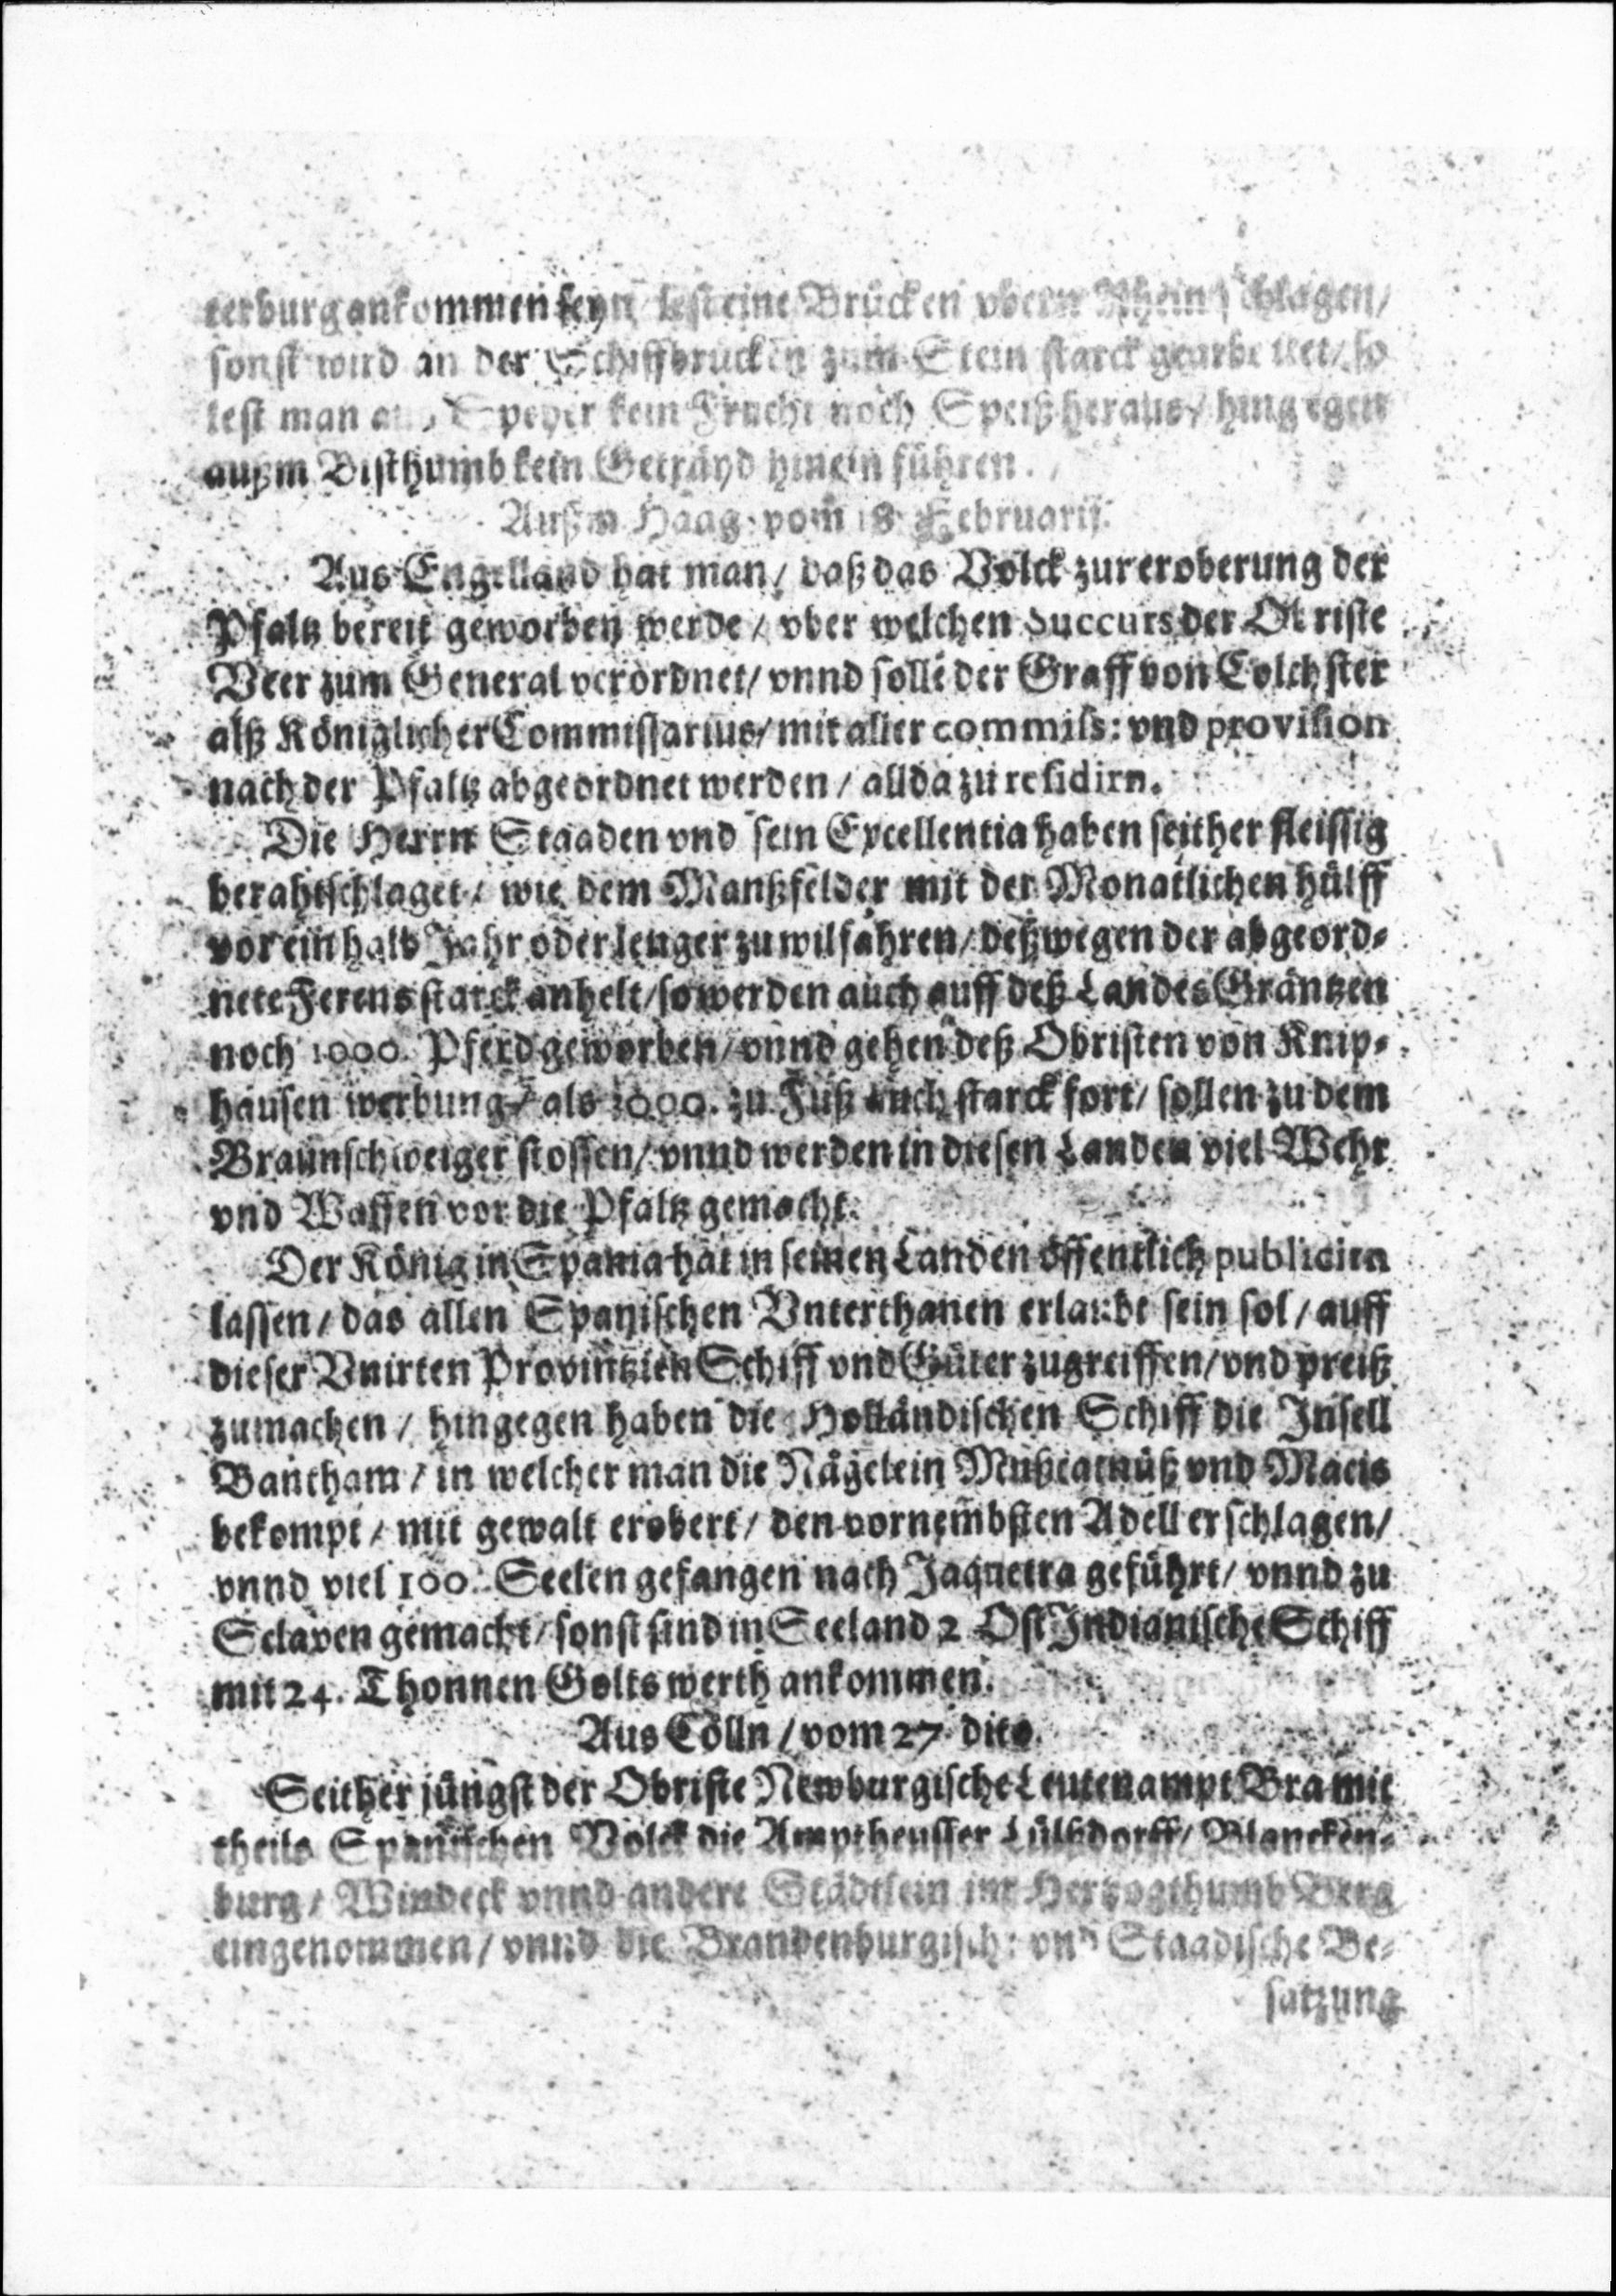 terburg ankommen seyn / lest eine Brücken vbern Rhein schlagen /
sonst wird an der Schiffbrucken zum Stein starck gearbeitet / so
lest man aus Speyer kein Frucht noch Speiß heraus / hingegen
außm Bisthumb kein Getraÿd hinein führen.
Außm Haag vom 18 Februarij.
Aus Engelland hat man / daß das Volck zur eroberung der
Pfaltz bereit geworben werde / vber welchen Succurs der Obriste
Veer zum General verordnet / vnnd solle der Graff von Colchster
alß Königlicher Commissarius / mit aller commiss: vnd provision
nach der Pfaltz abgeordnet werden / allda zu residirn.
Die Herrn Staaden vnd sein Excellentia haben seither fleissig
berahtschlaget / wie dem Manßfelder mit der Monatlichen hülff
vor ein halb Jahr oder lenger zu wilfahren / deßwegen der abgeord-
nete Ferens starck anhelt / so werden auch auff deß Landes Gräntzen
noch 1000. Pferd geworben / vnnd gehen deß Obristen von Knip-
hausen werbung / als 3000. zu Fuß auch starck fort / sollen zu dem
Braunschweiger stossen / vnnd werden in diesen Landen viel Wehr
vnd Waffen vor die Pfaltz gemacht.
Der König in Spania hat in seinen Landen öffentlich publicirn
lassen / das allen Spanischen Vnterthanen erlaubt sein sol / auff
dieser Vnirten Provintzien Schiff vnd Güter zugreiffen / vnd preiß
zumachen / hingegen haben die Holländischen Schiff die Insell
Bantham / in welcher man die Nägelein Mußcatnüß vnd Macis
bekompt / mit gewalt erobert / den vornembsten Adell erschlagen /
vnnd viel 100. Seelen gefangen nach Jaquetra geführt / vnnd zu
Sclaven gemacht / sonst sind in Seeland 2 Ost Indianische Schiff
mit 24. Thonnen Golts werth ankommen.
Aus Cölln / vom 27 dito.
Seither jüngst der Obriste Newburgische Leutenampt Bra mit
theils Spanischen Volck die Amptheusser Lülßdorff / Blancken-
burg / Windeck vnnd andere Städtlein im Hertzogthumb Berg
eingenommen / vnnd die Brandenburgisch: vnd Staadische Be-
satzung